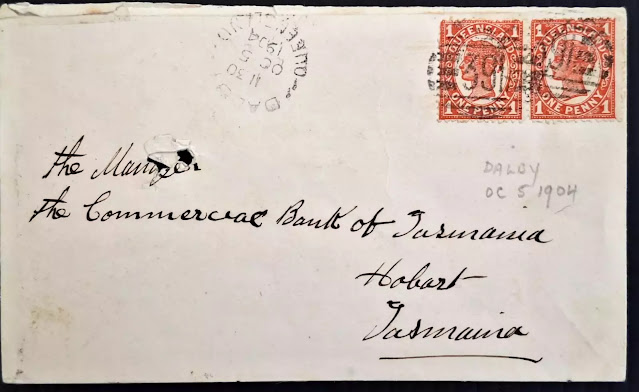 DALBY
11 30
OC 5
1904
QUEENSLAND
QUEENSLAND
1 ONE PENNY 1
QUEENSLAND
1 ONE PENNY 1
the Manager
the Commercial Bank of Tasmania
Hobart
Tasmania
DALBY
OC 5 1904